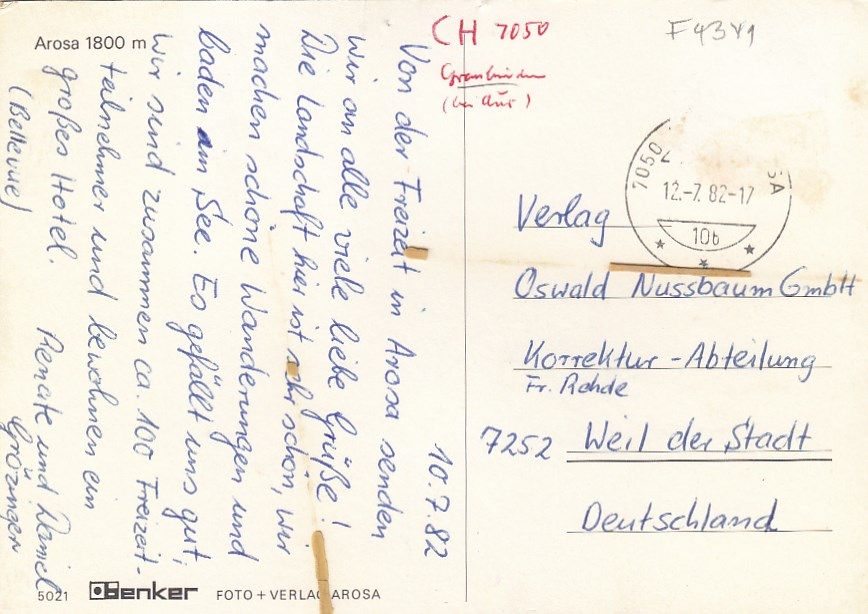 Arosa 1800 m
CH 7050
Graubünden
(bei Chur)
10.7.82
Von der Freizeit in Arosa senden
wir an alle viele liebe Grüße!
Die Landschaft hier ist sehr schön, wir
machen schöne Wanderungen und
baden im See. Es gefällt uns gut,
wir sind zusammen ca. 100 Freizeit-
teilnehmer und bewohnen ein
großes Hotel.
(Bellevue)
Renate und Daniel
Grözinger
7050
SA
12.-7.82-17
10b
Verlag
Oswald Nussbaum GmbH
Korrektur-Abteilung
Fr. Rohde
7252 Weil der Stadt
Deutschland
5021 Benker FOTO + VERLAG AROSA